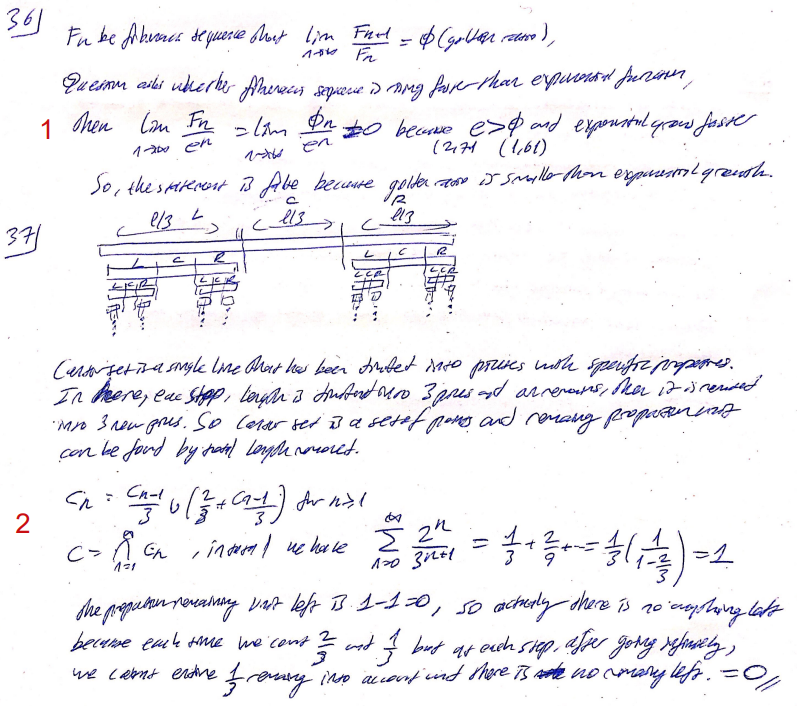 36) Fn be fibonacci sequence that lim n→∞ Fn+1/Fn = ϕ (golden ratio),
Question asks whether fibonacci sequence is rising faster than exponential function,
1 then lim n→∞ Fn/en = lim n→∞ ϕn/en → 0 because e>ϕ and exponential grows faster
(2,71 (1,61)
So, the statement is false because golden ratio is smaller than exponential growth.
37) l/3 L l/3 C l/3 R
L C R L C R
L C R L C R L C R L C R
Cantor set is a single line that has been divided into pieces with specific properties.
In here, each step, length is divided into 3 pieces and as remains, then it is
into 3 new pieces. So Cantor set is a set of points and remaining proportion unit
can be found by total length removed.
Cn = Cn-1/3 ∪ (2/3 + Cn-1/3) for n≥1
2 C = ∩ n=1 ∞ Cn , in total we have ∑ n=0 ∞ 2^n/3^n+1 = 1/3 + 2/9 + ... = 1/3 (1/1-2/3) = 1
the proportion remaining unit left is 1-1=0, so actually there is no anything left
because each time we count 2/3 and 1/3 but at each step, after going infinitely,
we cannot 1/3 remaining into account and there is no remaining left. = 0 //